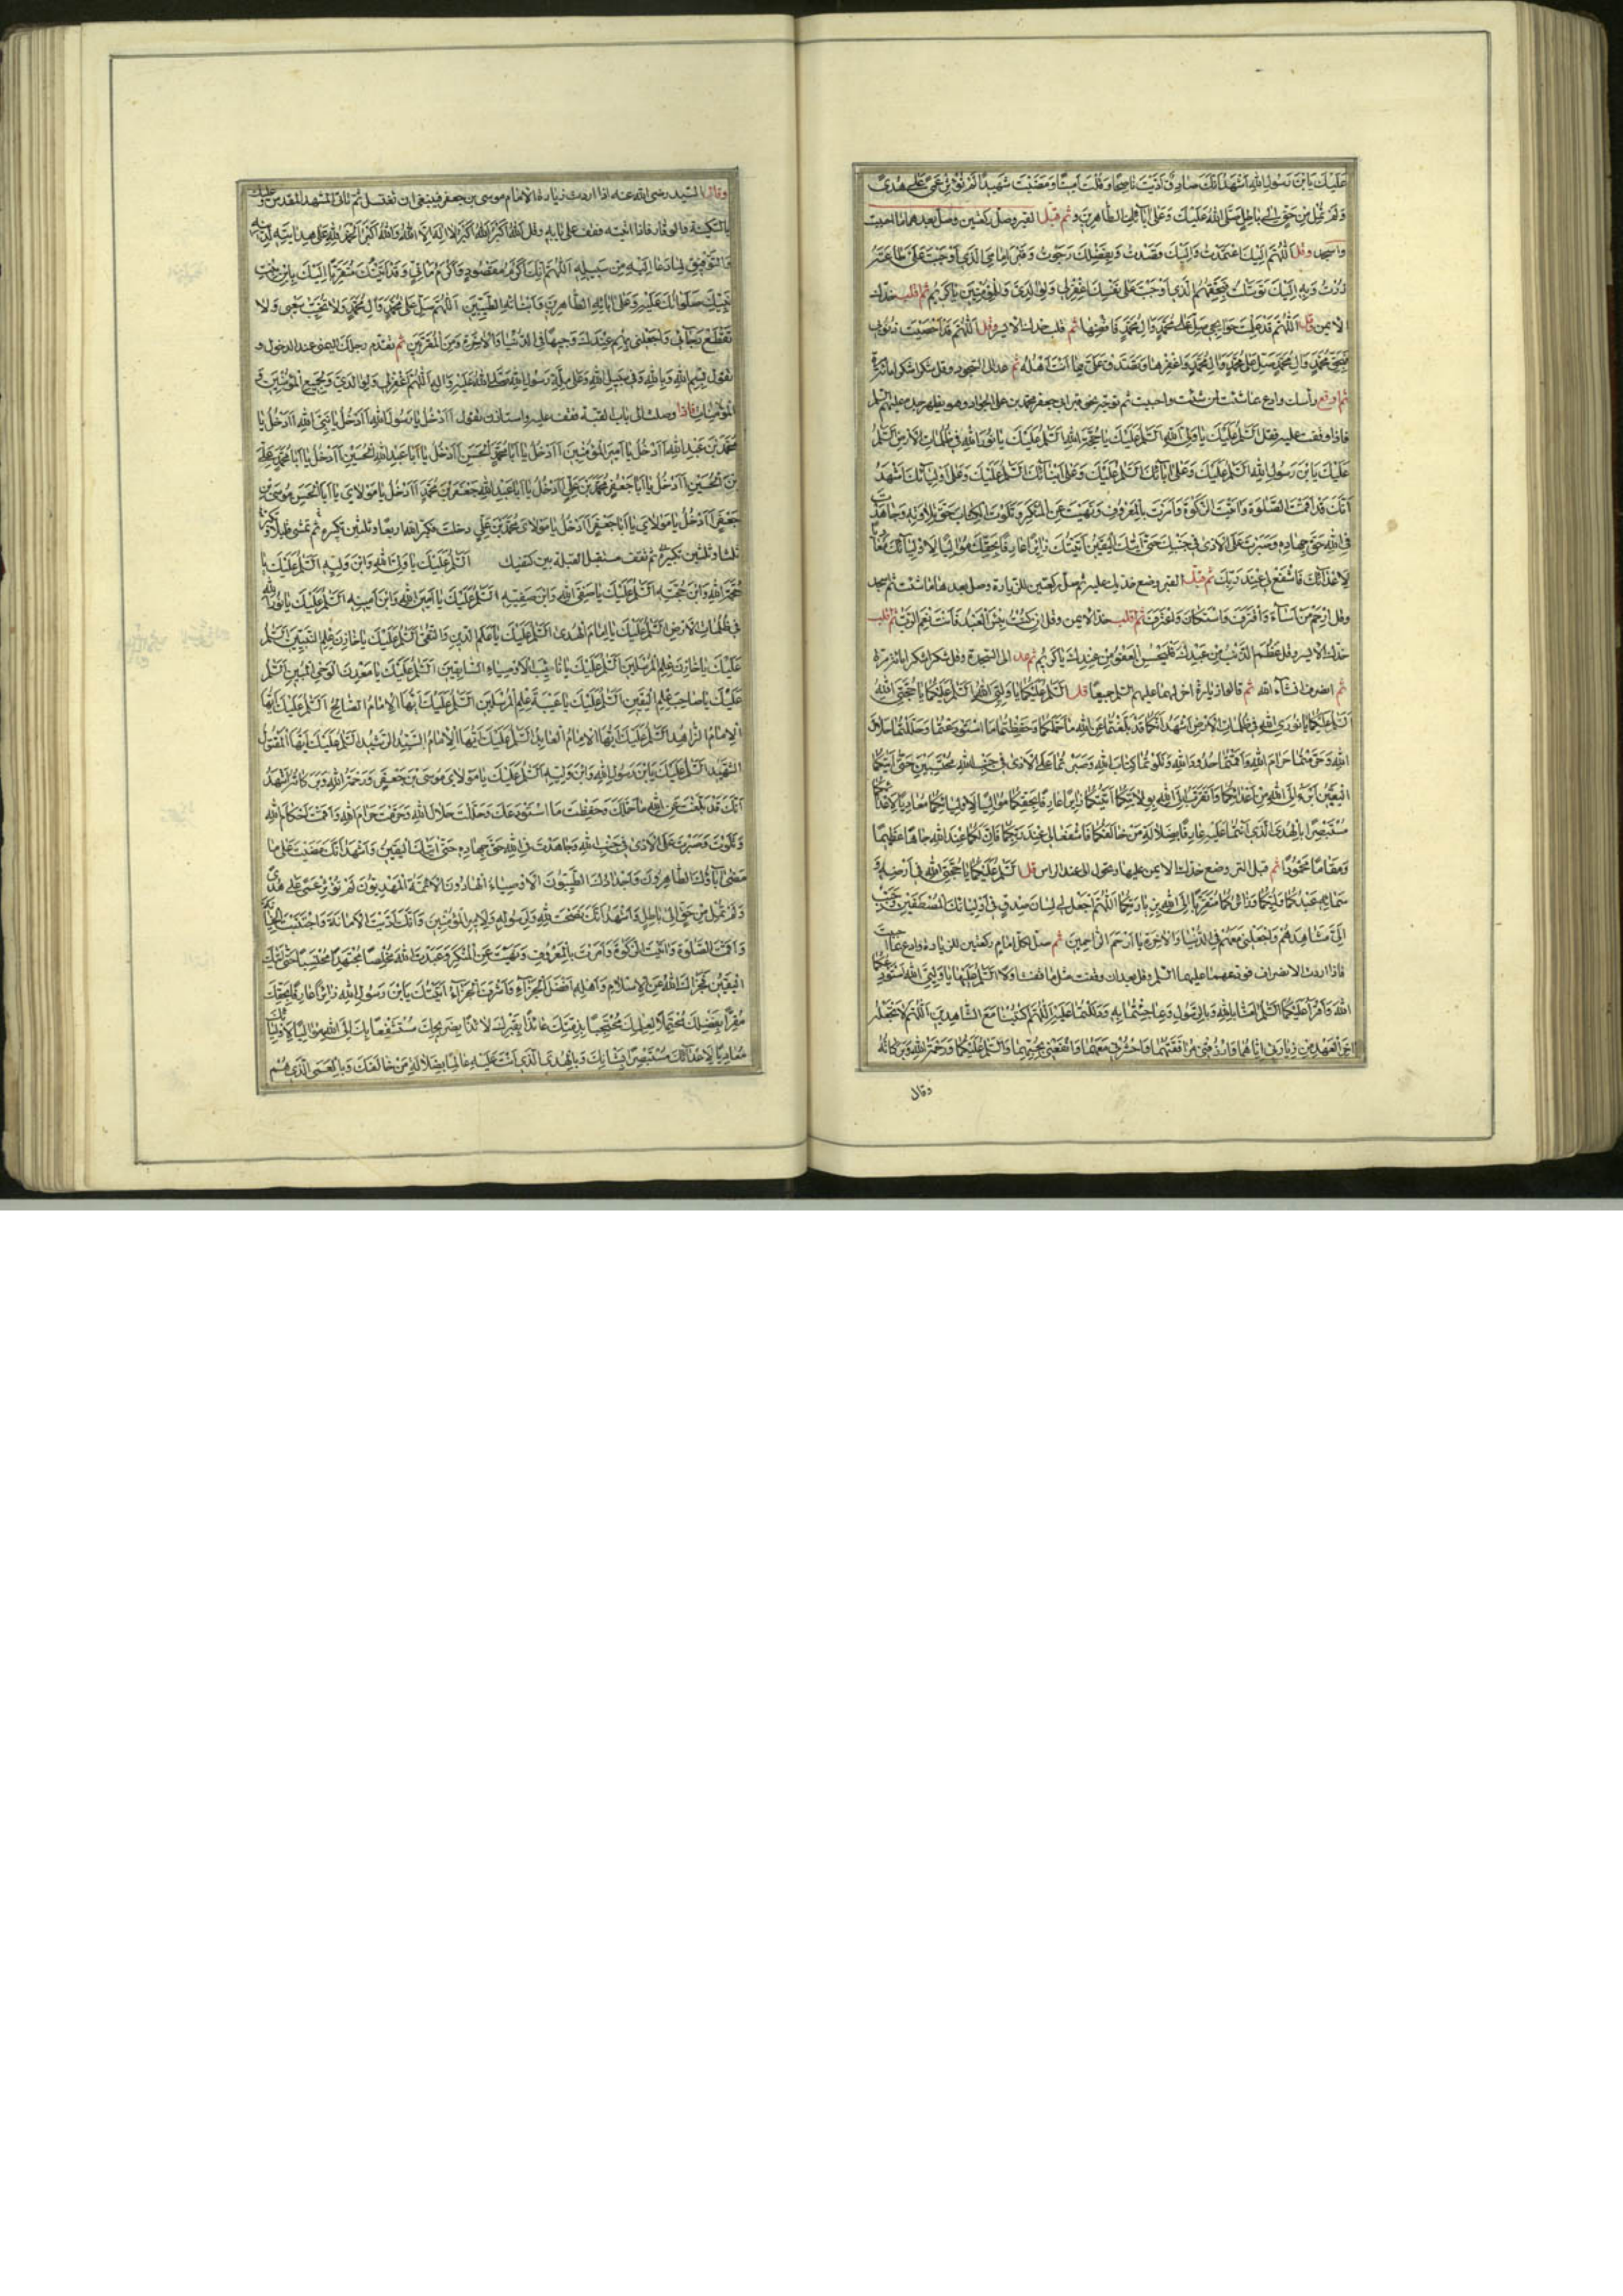 عَلَيْكَ يَا بْنَ رَسُولِ اللهِ اَشْهَدُ اَنَّكَ صَادِقٌ اَدَّيْتَ نَاصِحًا وَقُلْتَ اَمِينًا وَمَضَيْتَ شَهِيدًا لَمْ تُؤْثِرْ عَمًى عَلٰى هُدًى
وَلَمْ تَمِلْ مِنْ حَقٍّ اِلٰى بَاطِلٍ صَلَّى اللهُ عَلَيْكَ وَعَلٰى اٰبَائِكَ الطَّاهِرِينَ ثم قبل القبر وصل ركعتين وصل بعدهما ما احببت
واسجد وقل اَللّٰهُمَّ اِلَيْكَ اعْتَمَدْتُ وَاِلَيْكَ قَصَدْتُ وَبِفَضْلِكَ رَجَوْتُ وَقَبْرَ اِمَامِيَ الَّذِي اَوْجَبْتَ عَلَيَّ طَاعَتَهُ
زُرْتُ وَبِهِ اِلَيْكَ تَوَسَّلْتُ فَبِحَقِّهِمُ الَّذِي اَوْجَبْتَ عَلٰى نَفْسِكَ اغْفِرْ لِي وَلِوَالِدَيَّ وَلِلْمُؤْمِنِينَ يَا كَرِيمُ ثم اقلب خدك
الايمن وقل اَللّٰهُمَّ قَدْ عَلِمْتَ حَوَائِجِي صَلِّ عَلٰى مُحَمَّدٍ وَاٰلِ مُحَمَّدٍ وَاقْضِهَا ثم اقلب خدك الايسر وقل اَللّٰهُمَّ قَدْ اَحْصَيْتَ ذُنُوبِي
فَبِحَقِّ مُحَمَّدٍ وَاٰلِ مُحَمَّدٍ صَلِّ عَلٰى مُحَمَّدٍ وَاٰلِ مُحَمَّدٍ وَاغْفِرْهَا وَتَصَدَّقْ عَلَيَّ بِمَا اَنْتَ اَهْلُهُ ثم عد الى السجود وقل شكرا شكرا مائة مرة
ثم ارفع رأسك وادع بما شئت لمن شئت واحببت ثم توجه نحو قبر ابي جعفر محمد بن علي الجواد وهو بظهر جده عليهما السلم
فاذا وقفت عليه فقل اَلسَّلٰمُ عَلَيْكَ يَا وَلِيَّ اللهِ اَلسَّلٰمُ عَلَيْكَ يَا حُجَّةَ اللهِ اَلسَّلٰمُ عَلَيْكَ يَا نُورَ اللهِ فِي ظُلُمَاتِ الْاَرْضِ اَلسَّلٰمُ
عَلَيْكَ يَا بْنَ رَسُولِ اللهِ اَلسَّلٰمُ عَلَيْكَ وَعَلٰى اٰبَائِكَ اَلسَّلٰمُ عَلَيْكَ وَعَلٰى اَبْنَائِكَ اَلسَّلٰمُ عَلَيْكَ وَعَلٰى اَوْلِيَائِكَ اَشْهَدُ
اَنَّكَ قَدْ اَقَمْتَ الصَّلٰوةَ وَاٰتَيْتَ الزَّكٰوةَ وَاَمَرْتَ بِالْمَعْرُوفِ وَنَهَيْتَ عَنِ الْمُنْكَرِ وَتَلَوْتَ الْكِتَابَ حَقَّ تِلَاوَتِهِ وَجَاهَدْتَ
فِي اللهِ حَقَّ جِهَادِهِ وَصَبَرْتَ عَلَى الْاَذٰى فِي جَنْبِهِ حَتّٰى اَتٰيكَ الْيَقِينُ اَتَيْتُكَ زَائِرًا عَارِفًا بِحَقِّكَ مُوَالِيًا لِاَوْلِيَائِكَ مُعَادِيًا
لِاَعْدَائِكَ فَاشْفَعْ لِي عِنْدَ رَبِّكَ ثم قبل القبر وضع خديك عليه ثم صل ركعتين للزيارة وصل بعدهما ما شئت ثم اسجد
وقل اِرْحَمْ مَنْ اَسَاءَ وَاقْتَرَفَ وَاسْتَكَانَ وَاعْتَرَفَ ثم اقلب خدك الايمن وقل اِنْ كُنْتُ بِئْسَ الْعَبْدُ فَاَنْتَ نِعْمَ الرَّبُّ ثم اقلب
خدك الايسر وقل عَظُمَ الذَّنْبُ مِنْ عَبْدِكَ فَلْيَحْسُنِ الْعَفْوُ مِنْ عِنْدِكَ يَا كَرِيمُ ثم عد الى السجدة وقل شكرا شكرا مائة مرة
ثم انصرف انشاء الله ثم قالوا زيارة اخرى لهما عليهما السلم جميعا قل اَلسَّلٰمُ عَلَيْكُمَا يَا وَلِيَّيِ اللهِ اَلسَّلٰمُ عَلَيْكُمَا يَا حُجَّتَيِ اللهِ
اَلسَّلٰمُ عَلَيْكُمَا يَا نُورَيِ اللهِ فِي ظُلُمَاتِ الْاَرْضِ اَشْهَدُ اَنَّكُمَا قَدْ بَلَّغْتُمَا عَنِ اللهِ مَا حَمَّلَكُمَا وَحَفِظْتُمَا مَا اسْتُودِعْتُمَا وَحَلَّلْتُمَا حَلَالَ
اللهِ وَحَرَّمْتُمَا حَرَامَ اللهِ وَاَقَمْتُمَا حُدُودَ اللهِ وَتَلَوْتُمَا كِتَابَ اللهِ وَصَبَرْتُمَا عَلَى الْاَذٰى فِي جَنْبِ اللهِ مُحْتَسِبَيْنِ حَتّٰى اَتٰيكُمَا
الْيَقِينُ اَبْرَءُ اِلَى اللهِ مِنْ اَعْدَائِكُمَا وَاَتَقَرَّبُ اِلَى اللهِ بِوِلَايَتِكُمَا اَتَيْتُكُمَا زَائِرًا عَارِفًا بِحَقِّكُمَا مُوَالِيًا لِاَوْلِيَائِكُمَا مُعَادِيًا لِاَعْدَائِكُمَا
مُسْتَبْصِرًا بِالْهُدَى الَّذِي اَنْتُمَا عَلَيْهِ عَارِفًا بِضَلَالَةِ مَنْ خَالَفَكُمَا فَاشْفَعَا لِي عِنْدَ رَبِّكُمَا فَاِنَّ لَكُمَا عِنْدَ اللهِ جَاهًا عَظِيمًا
وَمَقَامًا مَحْمُودًا ثم قبل التربة وضع خدك الايمن عليها وتحول الى عند الراس قل اَلسَّلٰمُ عَلَيْكُمَا يَا حُجَّتَيِ اللهِ فِي اَرْضِهِ وَ
سَمَائِهِ عَبْدُكُمَا وَوَلِيُّكُمَا وَزَائِرُكُمَا مُتَقَرِّبًا اِلَى اللهِ بِزِيَارَتِكُمَا اَللّٰهُمَّ اجْعَلْ لِي لِسَانَ صِدْقٍ فِي اَوْلِيَائِكَ الْمُصْطَفَيْنَ وَحَبِّبْ
اِلَيَّ مَشَاهِدَهُمْ وَاجْعَلْنِي مَعَهُمْ فِي الدُّنْيَا وَالْاٰخِرَةِ يَا اَرْحَمَ الرَّاحِمِينَ ثم صل لكل امام ركعتين للزيارة وادع بما احببت
فاذا اردت الانصراف فودعهما عليهما السلم وقل بعد ان وقفت مثل ما قلت اولا اَلسَّلٰمُ عَلَيْكُمَا يَا وَلِيَّيِ اللهِ اَسْتَوْدِعُكُمَا
اللهَ وَاَقْرَأُ عَلَيْكُمَا السَّلٰمَ اٰمَنَّا بِاللهِ وَبِالرَّسُولِ وَبِمَا جِئْتُمَا بِهِ وَدَلَلْتُمَا عَلَيْهِ اَللّٰهُمَّ اكْتُبْنَا مَعَ الشَّاهِدِينَ اَللّٰهُمَّ لَا تَجْعَلْهُ
اٰخِرَ الْعَهْدِ مِنْ زِيَارَتِي اِيَّاهُمَا وَارْزُقْنِي مُرَافَقَتَهُمَا وَاحْشُرْنِي مَعَهُمَا وَانْفَعْنِي بِحُبِّهِمَا وَالسَّلٰمُ عَلَيْكُمَا وَرَحْمَةُ اللهِ وَبَرَكَاتُهُ
وقال
وقال السيد رضى الله عنه اذا اردت زيارة الامام موسى بن جعفر فينبغى ان تغتسل ثم تأتى المشهد المقدس وعليك
السكينة والوقار فاذا اتيته فقف على بابه وقل اَللهُ اَكْبَرُ اَللهُ اَكْبَرُ لَا اِلٰهَ اِلَّا اللهُ وَاللهُ اَكْبَرُ اَلْحَمْدُ لِلّٰهِ عَلٰى هِدَايَتِهِ لِدِينِهِ
وَالتَّوْفِيقِ لِمَا دَعَا اِلَيْهِ مِنْ سَبِيلِهِ اَللّٰهُمَّ اِنَّكَ اَكْرَمُ مَقْصُودٍ وَاَكْرَمُ مَأْتِيٍّ وَقَدْ اَتَيْتُكَ مُتَقَرِّبًا اِلَيْكَ بِابْنِ بِنْتِ
نَبِيِّكَ صَلَوَاتُكَ عَلَيْهِ وَعَلٰى اٰبَائِهِ الطَّاهِرِينَ وَاَبْنَائِهِ الطَّيِّبِينَ اَللّٰهُمَّ صَلِّ عَلٰى مُحَمَّدٍ وَاٰلِ مُحَمَّدٍ وَلَا تُخَيِّبْ سَعْيِي وَلَا
تَقْطَعْ رَجَائِي وَاجْعَلْنِي بِهِمْ عِنْدَكَ وَجِيهًا فِي الدُّنْيَا وَالْاٰخِرَةِ وَمِنَ الْمُقَرَّبِينَ ثم تقدم رجلك اليمنى عند الدخول و
تقول بِسْمِ اللهِ وَبِاللهِ وَفِي سَبِيلِ اللهِ وَعَلٰى مِلَّةِ رَسُولِ اللهِ صَلَّى اللهُ عَلَيْهِ وَاٰلِهِ اَللّٰهُمَّ اغْفِرْ لِي وَلِوَالِدَيَّ وَلِجَمِيعِ الْمُؤْمِنِينَ وَ
الْمُؤْمِنَاتِ فاذا وصلت الى باب القبة فقف عليه واستاذن تقول أَاَدْخُلُ يَا رَسُولَ اللهِ أَاَدْخُلُ يَا نَبِيَّ اللهِ أَاَدْخُلُ يَا
مُحَمَّدَ بْنَ عَبْدِ اللهِ أَاَدْخُلُ يَا اَمِيرَ الْمُؤْمِنِينَ أَاَدْخُلُ يَا اَبَا مُحَمَّدٍ الْحَسَنَ أَاَدْخُلُ يَا اَبَا عَبْدِ اللهِ الْحُسَيْنَ أَاَدْخُلُ يَا اَبَا مُحَمَّدٍ عَلِيَّ
بْنَ الْحُسَيْنِ أَاَدْخُلُ يَا اَبَا جَعْفَرٍ مُحَمَّدَ بْنَ عَلِيٍّ أَاَدْخُلُ يَا اَبَا عَبْدِ اللهِ جَعْفَرَ بْنَ مُحَمَّدٍ أَاَدْخُلُ يَا مَوْلَايَ يَا اَبَا الْحَسَنِ مُوسَى بْنَ
جَعْفَرٍ أَاَدْخُلُ يَا مَوْلَايَ يَا اَبَا جَعْفَرٍ أَاَدْخُلُ يَا مَوْلَايَ مُحَمَّدَ بْنَ عَلِيٍّ فاذا دخلت فكبر الله اربعا وثلثين تكبيرة ثم تمشى قليلا وتكبر
ثلثا وثلثين تكبيرة ثم تقف مستقبل القبلة بين كتفيك اَلسَّلٰمُ عَلَيْكَ يَا وَلِيَّ اللهِ وَابْنَ وَلِيِّهِ اَلسَّلٰمُ عَلَيْكَ يَا
حُجَّةَ اللهِ وَابْنَ حُجَّتِهِ اَلسَّلٰمُ عَلَيْكَ يَا صَفِيَّ اللهِ وَابْنَ صَفِيِّهِ اَلسَّلٰمُ عَلَيْكَ يَا اَمِينَ اللهِ وَابْنَ اَمِينِهِ اَلسَّلٰمُ عَلَيْكَ يَا نُورَ اللهِ
فِي ظُلُمَاتِ الْاَرْضِ اَلسَّلٰمُ عَلَيْكَ يَا اِمَامَ الْهُدٰى اَلسَّلٰمُ عَلَيْكَ يَا عَلَمَ الدِّينِ وَالتُّقٰى اَلسَّلٰمُ عَلَيْكَ يَا خَازِنَ عِلْمِ النَّبِيِّينَ اَلسَّلٰمُ
عَلَيْكَ يَا خَازِنَ عِلْمِ الْمُرْسَلِينَ اَلسَّلٰمُ عَلَيْكَ يَا نَائِبَ الْاَوْصِيَاءِ السَّابِقِينَ اَلسَّلٰمُ عَلَيْكَ يَا مَعْدِنَ الْوَحْيِ الْمُبِينِ اَلسَّلٰمُ
عَلَيْكَ يَا صَاحِبَ عِلْمِ الْيَقِينِ اَلسَّلٰمُ عَلَيْكَ يَا عَيْبَةَ عِلْمِ الْمُرْسَلِينَ اَلسَّلٰمُ عَلَيْكَ اَيُّهَا الْاِمَامُ الصَّالِحُ اَلسَّلٰمُ عَلَيْكَ اَيُّهَا
الْاِمَامُ الزَّاهِدُ اَلسَّلٰمُ عَلَيْكَ اَيُّهَا الْاِمَامُ الْعَابِدُ اَلسَّلٰمُ عَلَيْكَ اَيُّهَا الْاِمَامُ السَّيِّدُ الرَّشِيدُ اَلسَّلٰمُ عَلَيْكَ اَيُّهَا الْمَقْتُولُ
الشَّهِيدُ اَلسَّلٰمُ عَلَيْكَ يَا بْنَ رَسُولِ اللهِ وَابْنَ وَصِيِّهِ اَلسَّلٰمُ عَلَيْكَ يَا مَوْلَايَ مُوسَى بْنَ جَعْفَرٍ وَرَحْمَةُ اللهِ وَبَرَكَاتُهُ اَشْهَدُ
اَنَّكَ قَدْ بَلَّغْتَ عَنِ اللهِ مَا حَمَّلَكَ وَحَفِظْتَ مَا اسْتَوْدَعَكَ وَحَلَّلْتَ حَلَالَ اللهِ وَحَرَّمْتَ حَرَامَ اللهِ وَاَقَمْتَ اَحْكَامَ اللهِ
وَتَلَوْتَ وَصَبَرْتَ عَلَى الْاَذٰى فِي جَنْبِ اللهِ وَجَاهَدْتَ فِي اللهِ حَقَّ جِهَادِهِ حَتّٰى اَتٰيكَ الْيَقِينُ وَاَشْهَدُ اَنَّكَ مَضَيْتَ عَلٰى مَا
مَضٰى اٰبَاؤُكَ الطَّاهِرُونَ وَاَجْدَادُكَ الطَّيِّبُونَ الْاَوْصِيَاءُ الْهَادُونَ الْاَئِمَّةُ الْمَهْدِيُّونَ لَمْ تُؤْثِرْ عَمًى عَلٰى هُدًى
وَلَمْ تَمِلْ مِنْ حَقٍّ اِلٰى بَاطِلٍ وَاَشْهَدُ اَنَّكَ نَصَحْتَ لِلّٰهِ وَلِرَسُولِهِ وَلِاَمِيرِ الْمُؤْمِنِينَ وَاَنَّكَ اَدَّيْتَ الْاَمَانَةَ وَاجْتَنَبْتَ الْخِيَانَةَ
وَاَقَمْتَ الصَّلٰوةَ وَاٰتَيْتَ الزَّكٰوةَ وَاَمَرْتَ بِالْمَعْرُوفِ وَنَهَيْتَ عَنِ الْمُنْكَرِ وَعَبَدْتَ اللهَ مُخْلِصًا مُجْتَهِدًا مُحْتَسِبًا حَتّٰى اَتٰيكَ
الْيَقِينُ فَجَزَاكَ اللهُ عَنِ الْاِسْلَامِ وَاَهْلِهِ اَفْضَلَ الْجَزَاءِ وَاَشْرَفَ الْجَزَاءِ اَتَيْتُكَ يَا بْنَ رَسُولِ اللهِ زَائِرًا عَارِفًا بِحَقِّكَ
مُقِرًّا بِفَضْلِكَ مُحْتَمِلًا لِعِلْمِكَ مُحْتَجِبًا بِذِمَّتِكَ عَائِذًا بِقَبْرِكَ لَائِذًا بِضَرِيحِكَ مُسْتَشْفِعًا بِكَ اِلَى اللهِ مُوَالِيًا لِاَوْلِيَائِكَ
مُعَادِيًا لِاَعْدَائِكَ مُسْتَبْصِرًا بِشَانِكَ وَبِالْهُدَى الَّذِي اَنْتَ عَلَيْهِ عَالِمًا بِضَلَالَةِ مَنْ خَالَفَكَ وَبِالْعَمَى الَّذِي هُمْ